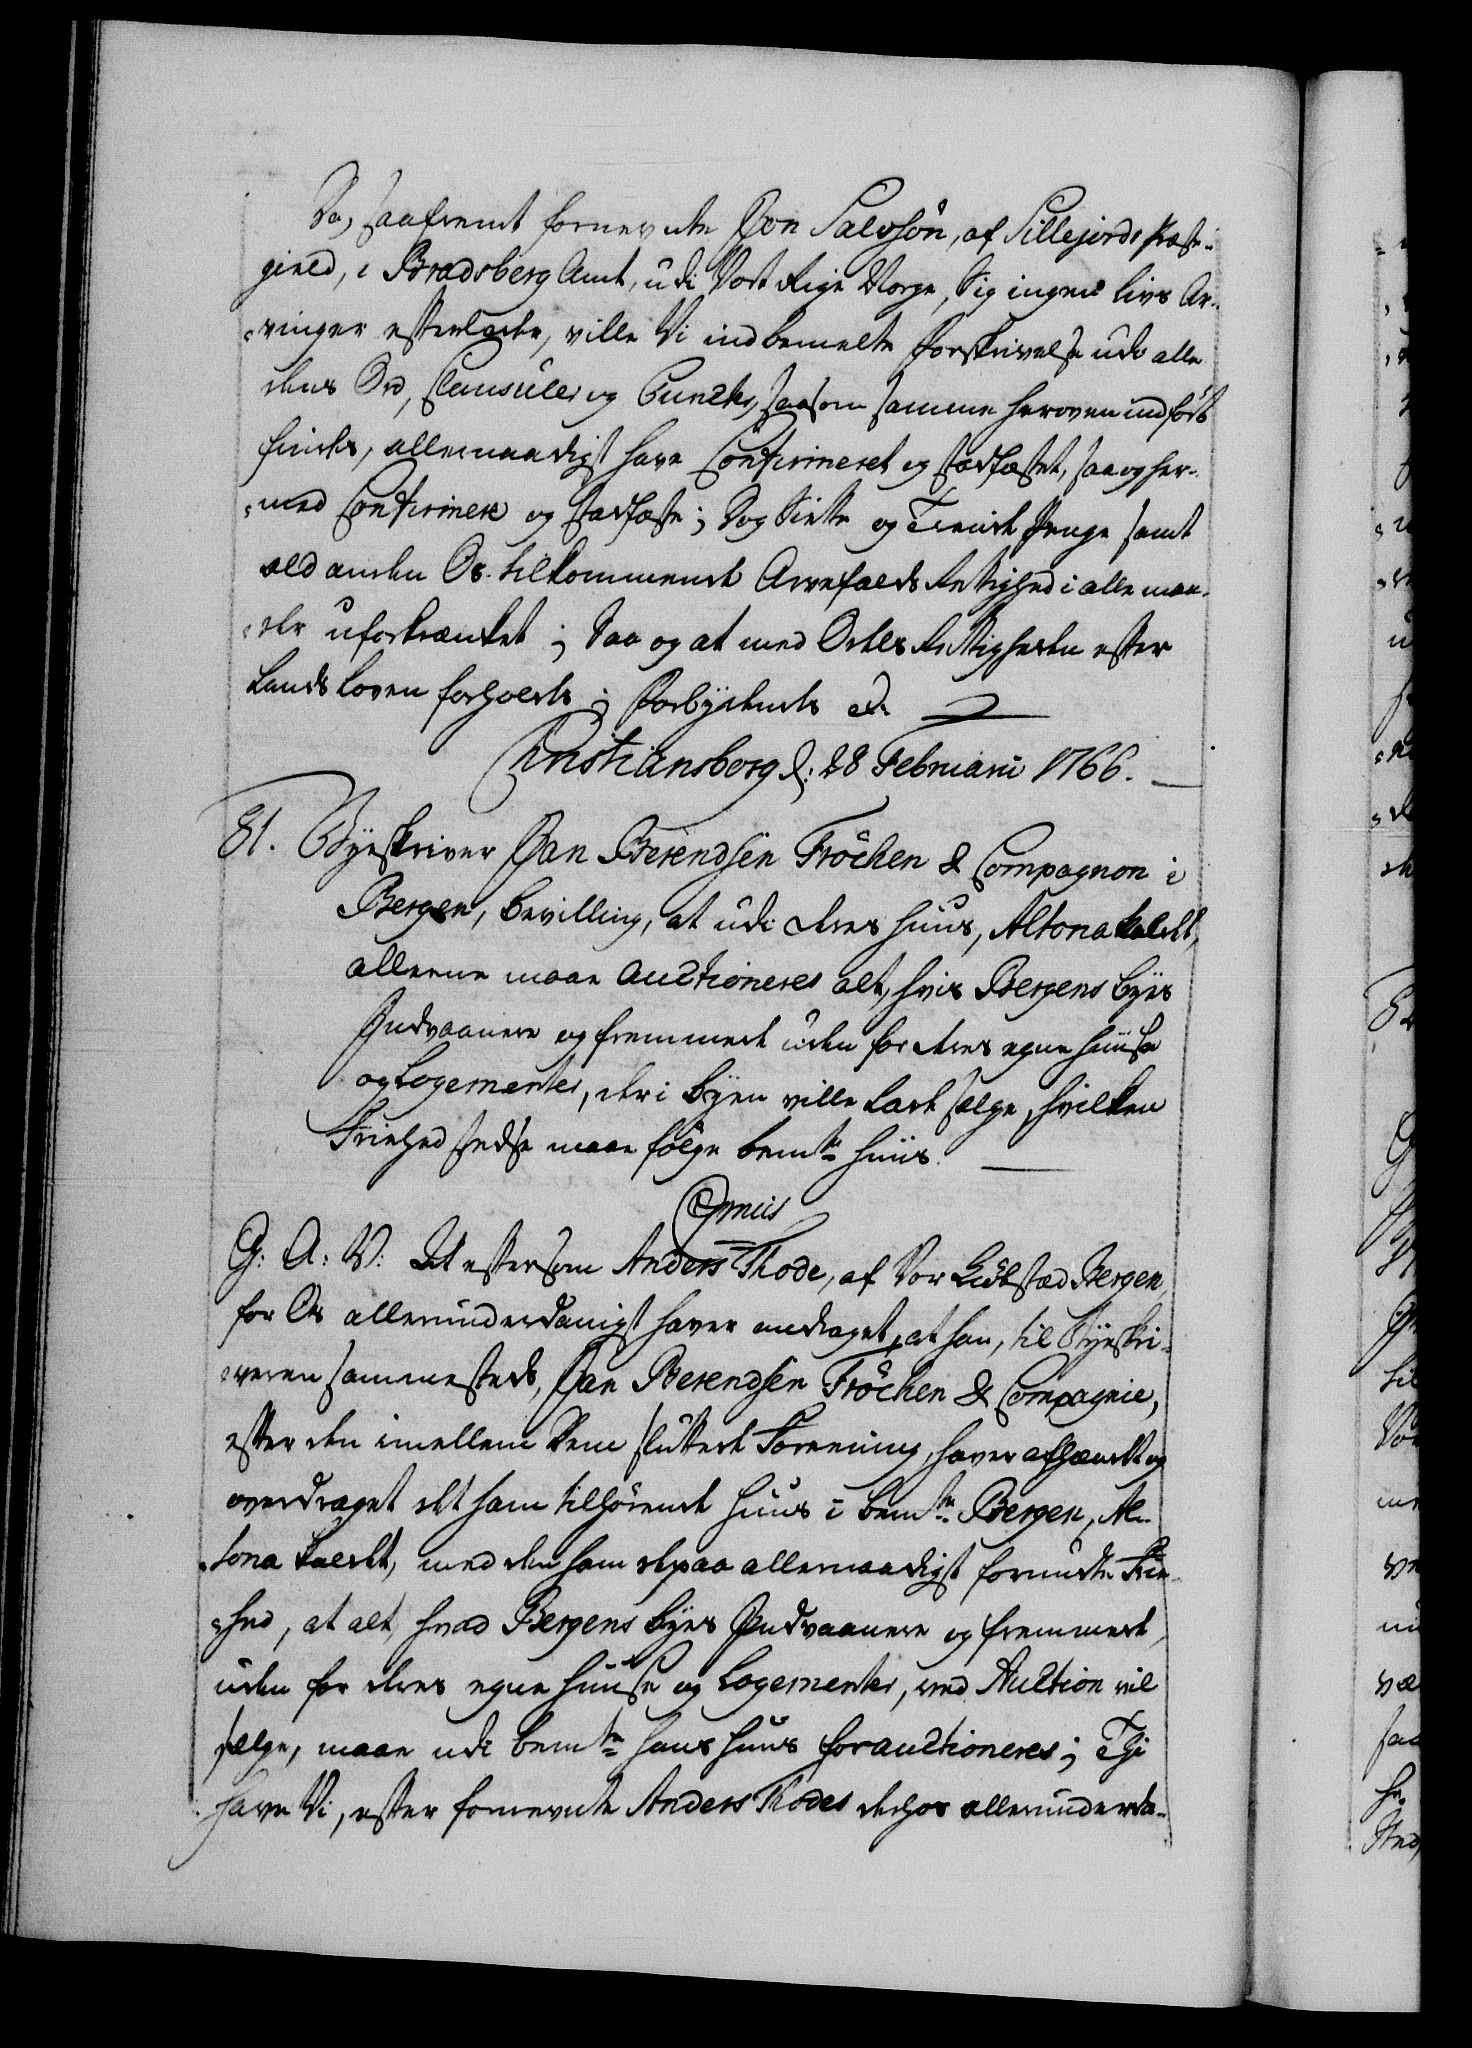 Da, saafremt fornevnte Jon Salvsön, af Sillejords Præste-
gield, i Bradsberg Amt, udi Vort Rige Norge, Sig ingen Livs Ar-
vinger efterlader, ville Vi indbemelte Forskrivelse udi alle
dens Ord, Clausuler og Puncter, saasom samme heroven indfört
findes, allernaadigst have Confirmeret og stadfæstet, saa og her-
med Confirmere og stadfæste; Dog Siette og Tiende Penge samt
ald anden Os tilkommende Arvefalds Rettighed i alle maa-
der uforkrænket; Saa og at med Odels Rettigheden efter
Lands Loven forholdes; Forbydendes etc.
Christiansborg d: 28 Februarii 1766.
81. Byeskriver Jan Berendsen Fröchen & Compagnon i
Bergen, Bevilling, at udi deres Huus, Altona kaldet,
alleene maae auctioneres alt, hvis Bergens Byes
Indvaanere og fremmede uden for deres egne Huuse
og Logementer, der i Byen ville lade sælge, hvilken
Friehed stedse maae fölge bemte Huus.
G: A: V: At eftersom Anders Thode, af Vor Kiöbstæd Bergen,
for Os allerunderdanigst haver andraget, at han, til Byeskri-
veren sammesteds, Jan Berendsen Fröchen & Compagnie,
efter den imellem dem sluttede Forening, haver afhændet og
overdraget det ham tilhörende Huus i bemte Bergen, Al-
tona kaldet, med den ham derpaa allernaadigst forundte Frie-
hed, at alt, hvad Bergens Byes Indvaanere og fremmede,
uden for deres egne Huuse og Logementer, ved Auction vil
sælge, maae udi bemte hans Huus forauctioneres; Thi
have Vi, efter fornevnte Anders Thodes derhos allerunderda-